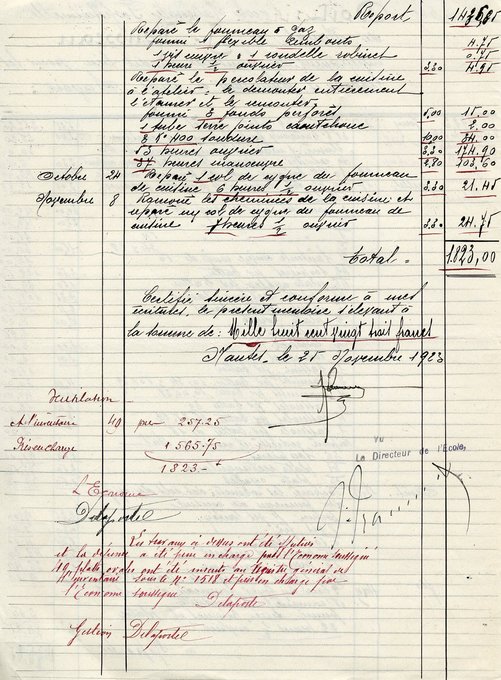 Report 1475,85
Réparé le fourneau à gaz
fourni 1 flexible Embouts 4.75
1 vis cuivre 1 rondelle robinet 0.75
1 heure 1/2 ouvrier 3,30 4.95
Réparé le percolateur de la cuisine
à l'atelier: le démonter entièrement
l'étamer et le remonter
fourni 3 fonds perforés 5,00 15.00
1 tube verre joints caoutchouc 2.00
2 K° 400 soudure 10,00 24.00
53 heures ouvrier 3,30 174.90
37 heures manoeuvre 2,80 103,60
Octobre 24 Réparé 1 col de cygne du fourneau
de cuisine 6 heures 1/2 ouvrier 3,30 21.45
Novembre 8 Ramoné les cheminées de la cuisine et
réparé un col de cygne du fourneau de
cuisine 7 heures 1/2 ouvrier 3.30 24.75
Total = 1.823,00
Certifié sincère et conforme à mes
écritures, le présent mémoire s'élevant à
la somme de: Mille huit cent vingt trois francs
Nantes, le 25 Novembre 1923
Ventilation
A l'inventaire 40 pour 257.25
Pris en charge 1565.75
1823.-
Vu
Le Directeur de l'École,
L'Econome
Delaporte
Les travaux ci dessus ont été
et la dépense a été prise en charge par l'Économe soussigné
40 plats ovales ont été inscrits au Registre général de
l'Inventaire sous le N° 1518 et pris en charge par
l'Économe soussigné
Delaporte
Gestion Delaporte